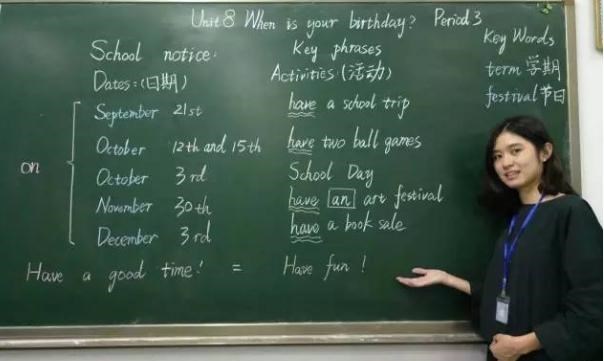 Unit 8 When is your birthday? Period 3
School notice:
Dates:(日期)
on
September 21st
October 12th and 15th
October 3rd
November 30th
December 3rd
Key phrases
Activities:(活动)
have a school trip
have two ball games
School Day
have an art festival
have a book sale
Key Words
term 学期
festival 节日
Have a good time! = Have fun!